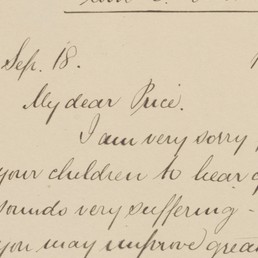 Sep. 18.
My dear Price.
I am very sorry
your children to hear
sounds very suffering -
you may improve